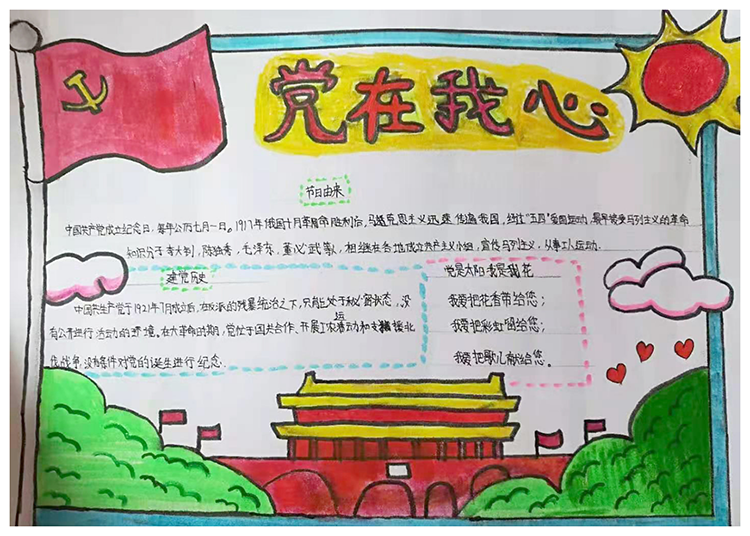 党在我心
节日由来
中国共产党成立纪念日,每年公历七月一日。1917年俄国十月革命胜利后,马克思主义迅速传遍我国,经过"五四"爱国运动,最早接受马列主义的革命
知识分子李大钊,陈独秀,毛泽东,董必武等人,相继在各地成立共产主义小组,宣传马列主义,从事工人运动.
建党历史
中国共生产党于1921年7月成立后,在反派的残暴统治之下,只能处于秘密状态,没
有公开进行活动的环境。在大革命时期,党忙于国共合作、开展工农运动和支援北
伐战争,没有条件对党的诞生进行纪念.
您是太阳 我是甜花
我要把花香带给您;
我要把彩虹留给您;
我要把歌儿献给您。